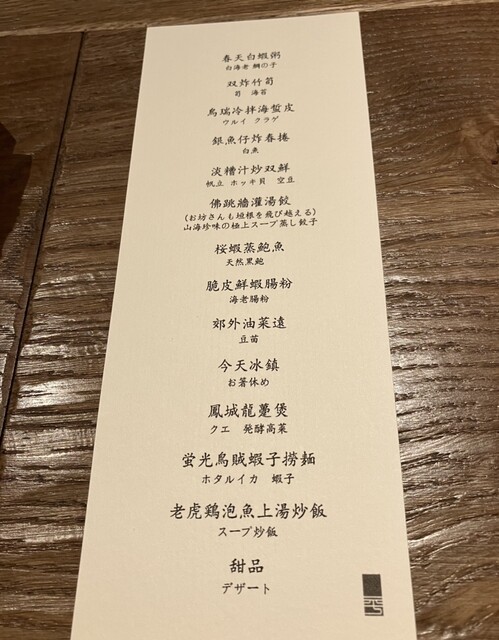 春天白蝦粥
白海老 鯛の子
双炸竹筍
筍　海苔
烏瑞冷拌海蜇皮
ウルイ　クラゲ
銀魚仔炸春捲
白魚
淡糟汁炒双鮮
帆立　ホッキ貝　空豆
佛跳牆灌湯餃
(お坊さんも垣根を飛び越える)
山海珍味の極上スープ蒸し餃子
桜蝦蒸鮑魚
天然黒鮑
脆皮鮮蝦腸粉
海老腸粉
郊外油菜遠
豆苗
今天冰鎮
お箸休め
鳳城龍躉煲
クエ　発酵高菜
蛍光烏賊蝦子撈麺
ホタルイカ　蝦子
老虎鶏泡魚上湯炒飯
スープ炒飯
甜品
デザート